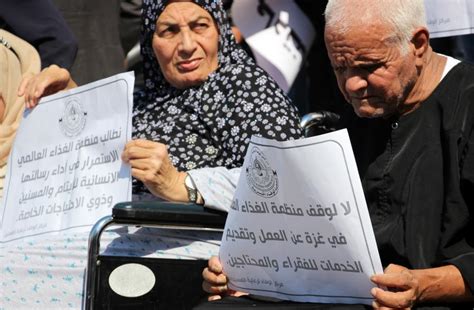 نطالب منظمة الغذاء العالمي
الاستمرار في أداء رسالتها
الإنسانية للأيتام والمسنين
وذوي الاحتياجات الخاصة.
لا لوقف منظمة الغذاء
في غزة عن العمل وتقديم
الخدمات للفقراء والمحتاجين.